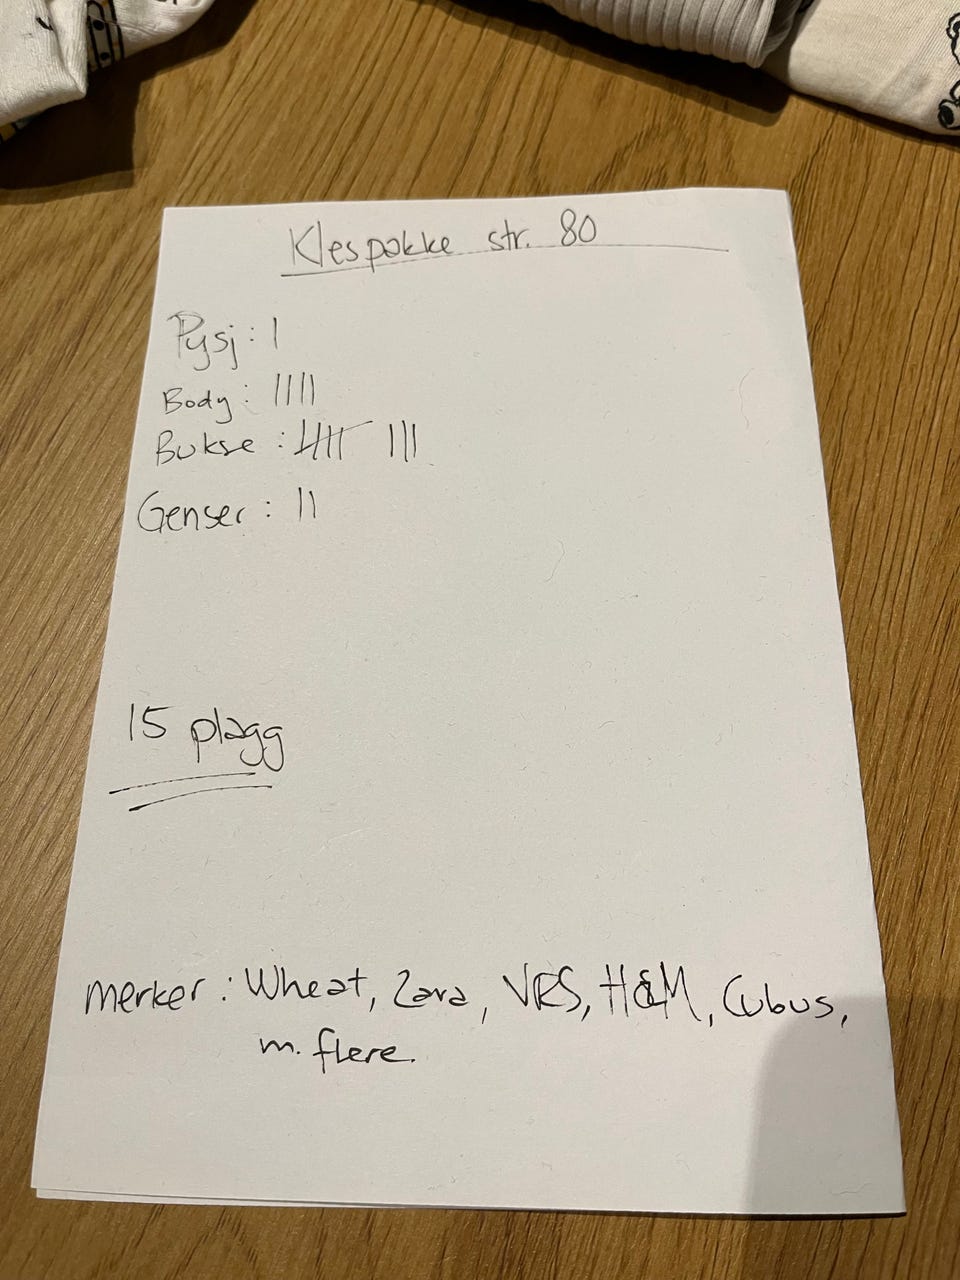 Klespakke str. 80
Pysj: |
Body: ||||
Bukse: 卌 |||
Genser: ||
15 plagg
merker: Wheat, Zara, VRS, H&M, Cubus,
m. flere.